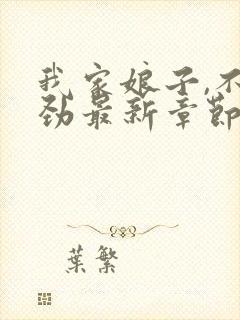 我家娘子,不
劲最新章节
葉繁